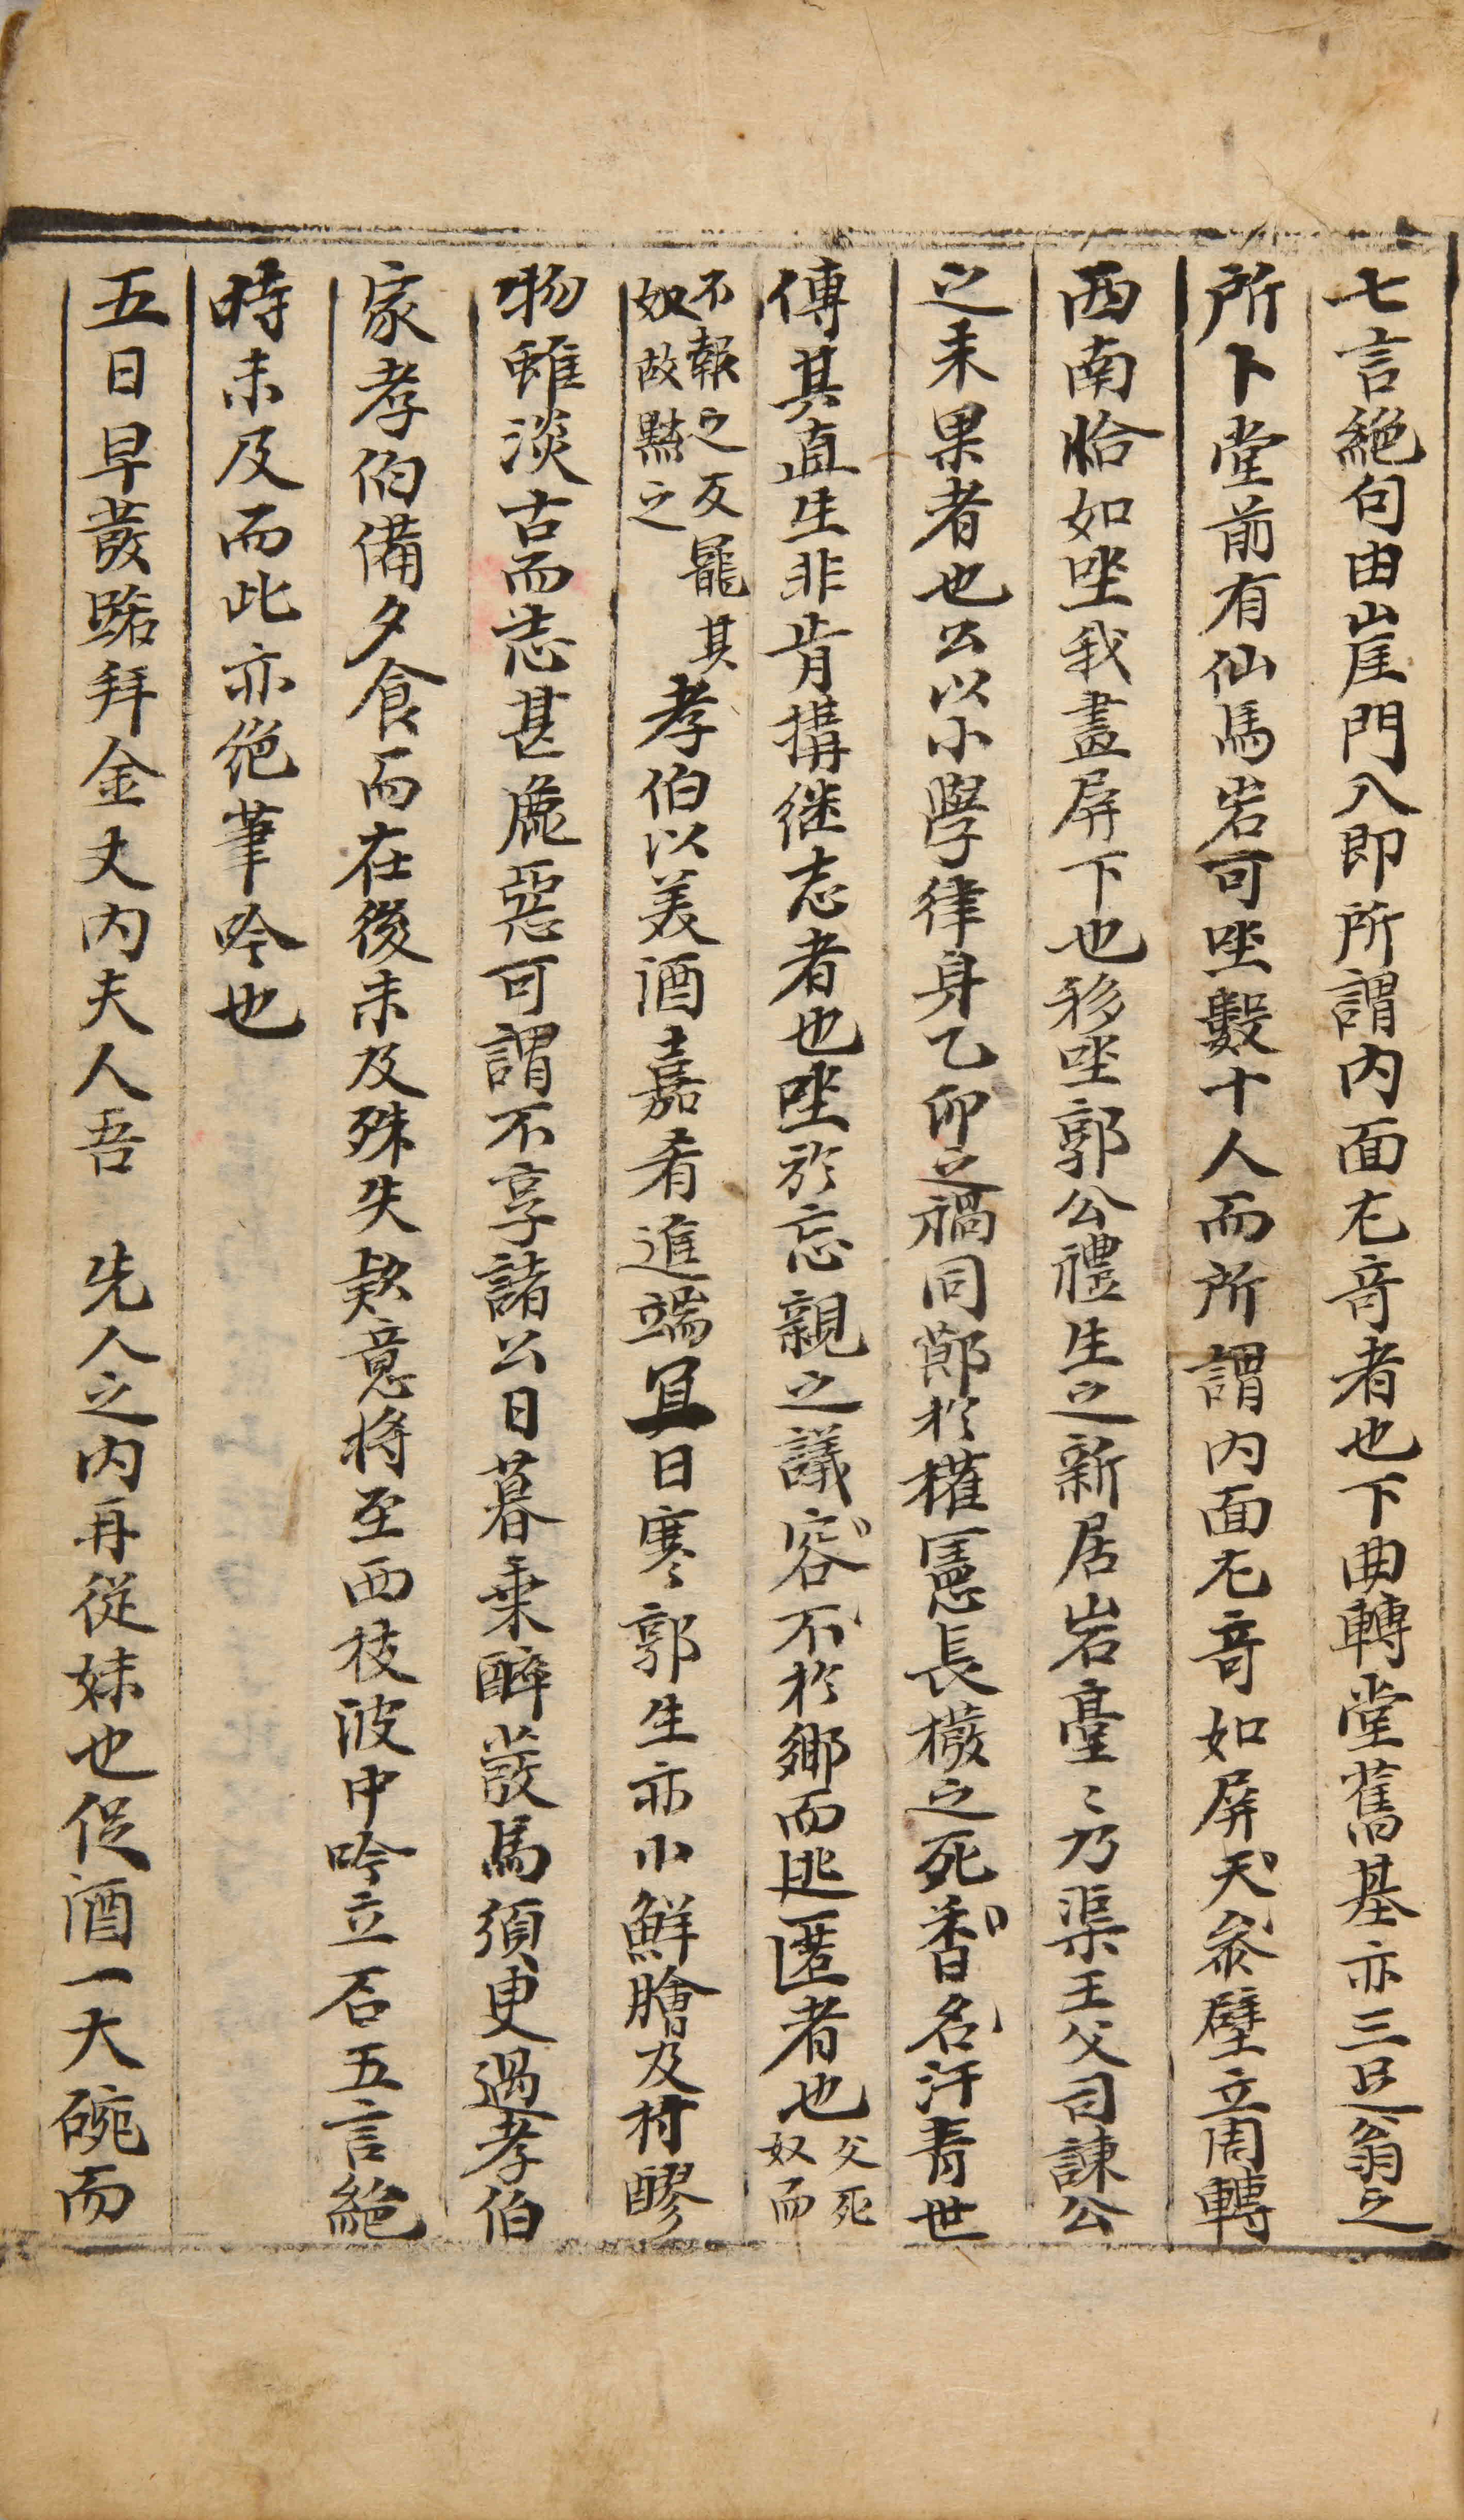 七言絶句由崖門入即所謂内面无音者也下曲轉堂舊基亦三足翁之
所卜堂前有仙馬岩可坐數十人而所謂内面无音如屏天叅壁立周轉
西南恰如坐我畫屏下也移坐郭公禮生之新居岩臺〻乃渠王父司諫公
之未果者也公以小學律身乙卯之禍同鄭於權罵長檄之死香名汗青世
傳其直生非肯搆継志者也坐於忘親之議容不於鄉而逃匿者也父死
奴而
不報之反寵其
奴故黜之
孝伯以美酒嘉肴進端且日寒郭生亦小鮮膾及村醪
物雖淡古而悲甚麁惡可謂不享諸公日暮乗醉發馬須更過孝伯
家孝伯備夕食而在後未及殊失欵意将至西枝波中吟立石五言絶
時未及而此亦絶筆吟也
五日早發踏拜金丈内夫人吾 先人之内再從妹也促酒一大碗而